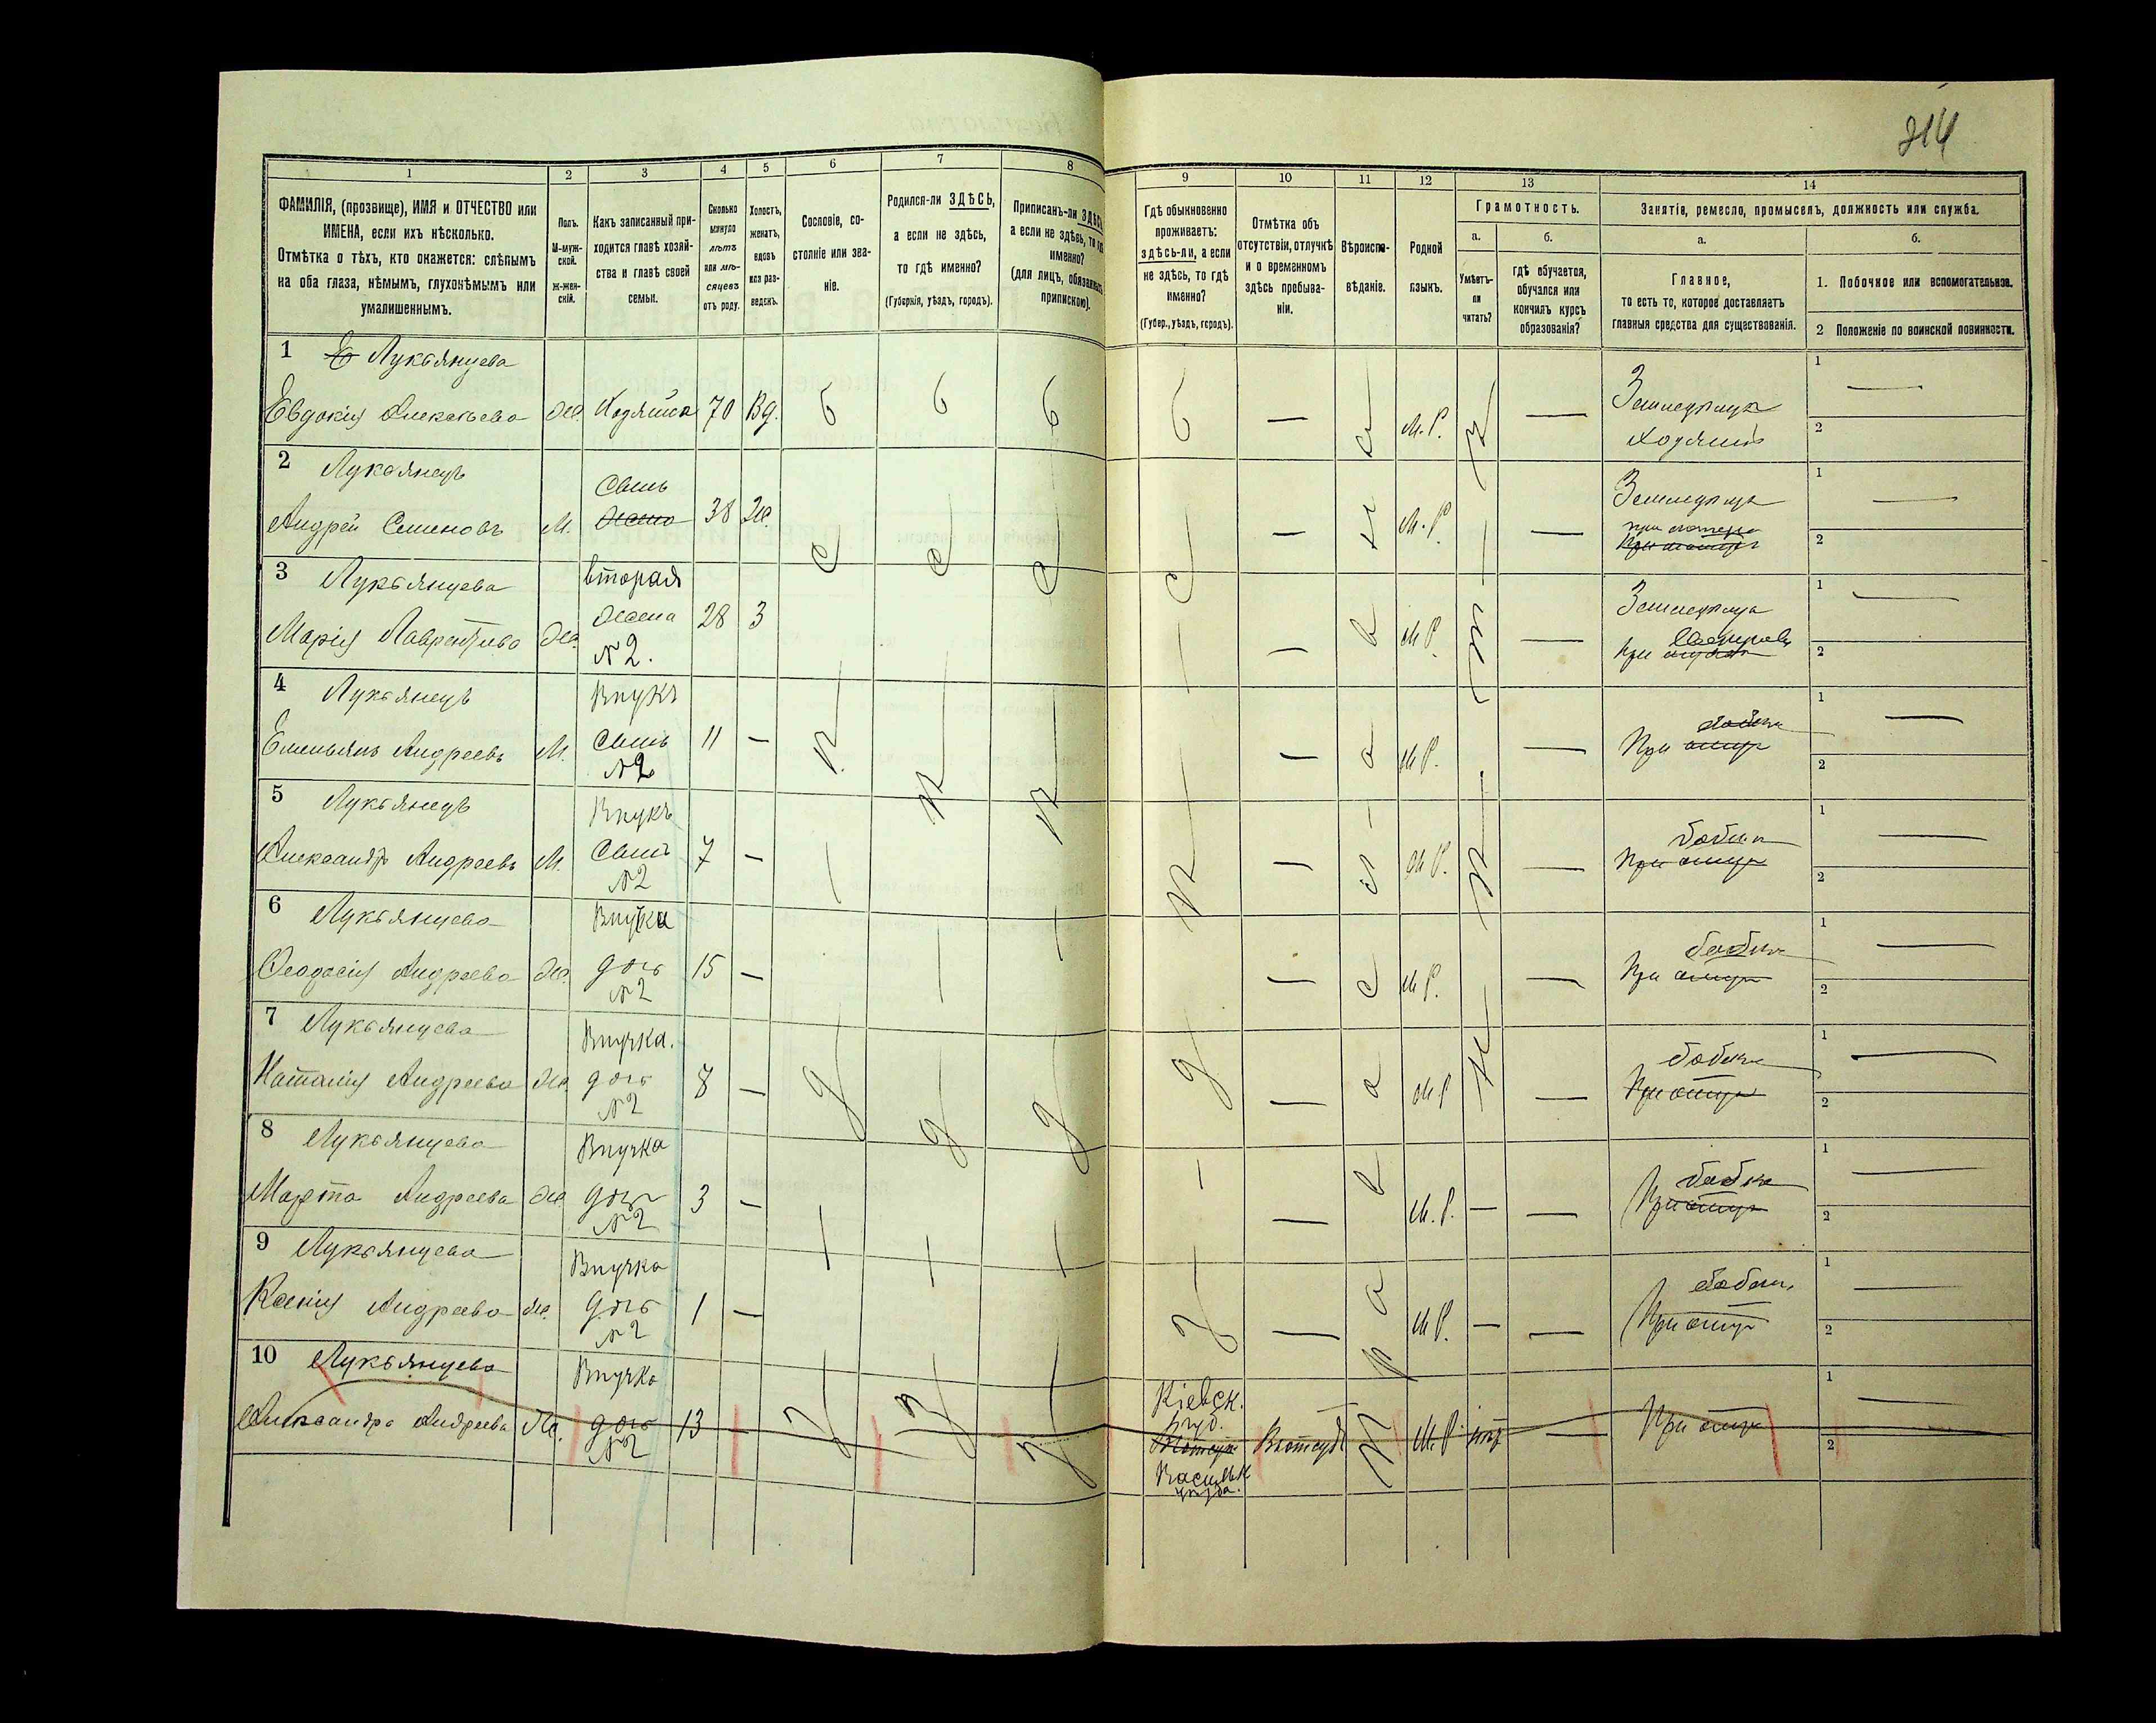 214
1
2
3
4
5
6
7
8
9
10
11
12
13
14
ФАМИЛІЯ, (прозвище), ИМЯ и ОТЧЕСТВО или
ИМЕНА, если ихъ нѣсколько.
Отмѣтка о тѣхъ, кто окажется: слѣпымъ
на оба глаза, нѣмымъ, глухонѣмымъ или
умалишеннымъ.
Полъ.
М-муж-
ской.
Ж-жен-
скій.
Какъ записанный при-
ходится главѣ хозяй-
ства и главѣ своей
семьи.
Сколько
минуло
лѣтъ
или мѣ-
сяцевъ
отъ роду.
Холостъ,
женатъ,
вдовъ
или раз-
веденъ.
Сословіе, со-
стояніе или зва-
ніе.
Родился-ли ЗДѢСЬ,
а если не здѣсь,
то гдѣ именно?
(Губернія, уѣздъ, городъ).
Приписанъ-ли ЗДѢСЬ,
а если не здѣсь, то гдѣ
именно?
(для лицъ, обязанныхъ
припискою).
Гдѣ обыкновенно
проживаетъ:
здѣсь-ли, а если
не здѣсь, то гдѣ
именно?
(Губер., уѣздъ, городъ).
Отмѣтка объ
отсутствіи, отлучкѣ
и о временномъ
здѣсь пребыва-
ніи.
Вѣроиспо-
вѣданіе.
Родной
языкъ.
Грамотность.
а.
б.
Умѣетъ-
ли
читать?
гдѣ обучается,
обучался или
кончилъ курсъ
образованія?
Занятіе, ремесло, промыселъ, должность или служба.
а.
б.
Главное,
то есть то, которое доставляетъ
главныя средства для существованія.
1. Побочное или вспомогательное.
2 Положеніе по воинской повинности.
1 Лукьянцева
Евдокія Алексѣева Же. Хозяйка 70 Вд. М.Р.
Земледѣлец
Хозяинъ
1
2
2 Лукьянецъ
Сынъ
Андрей Семеновъ М. жена 38 Же. М.Р.
Земледѣлец
при матери
1
2
3 Лукьянцева вторая
Марія Лаврентьева Же. жена 28 З М.Р.
№2.
Земледѣлец
при
1
2
4 Лукьянецъ Внукъ
Емельянъ Андреевъ М. Сынъ 11 — М.Р.
№2
При отцѣ
1
2
5 Лукьянецъ Внукъ
Александръ Андреевъ М. Сынъ 7 — М.Р.
№2
бабки
При отцѣ
1
2
6 Лукьянцева Внучка
Феодосія Андреева Же. дочь 15 — М.Р.
№2
бабки
При отцѣ
1
2
7 Лукьянцева Внучка.
Наталія Андреева Же. дочь 8 — М.Р.
№2
бабки
При отцѣ
1
2
8 Лукьянцева Внучка
Марта Андреева Же. дочь 3 — М.Р. —
№2
бабки
При отцѣ
1
2
9 Лукьянцева Внучка
Ксенія Андреева Же. дочь 1 — М.Р. —
№2
бабки
При отцѣ
1
2
10 Лукьянцева Внучка
Александра Андреева Же. дочь 13 —
№2
Кіевск.
губ.
Васильк
уѣзда.
М.Р. нѣт
При отцѣ
1
2